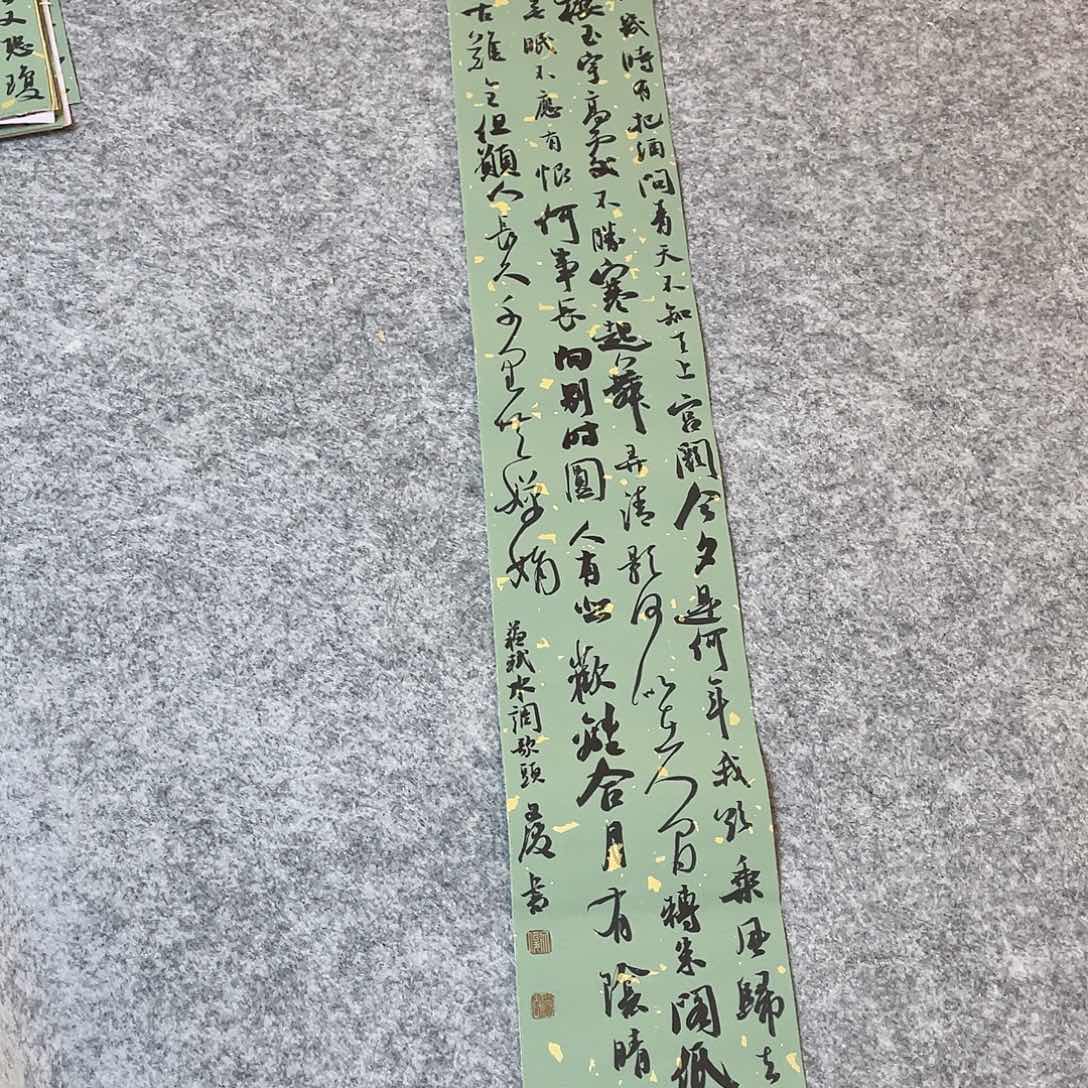 幾時有把酒問青天不知天上宮闕今夕是何年我欲乘風歸去
樓玉宇高處不勝寒起舞弄清影何似在人間轉朱閣低
無眠不應有恨何事長向別時圓人有悲歡離合月有陰晴
古難全但願人長久千里共嬋娟
蘇軾水調歌頭 書
又恐瓊